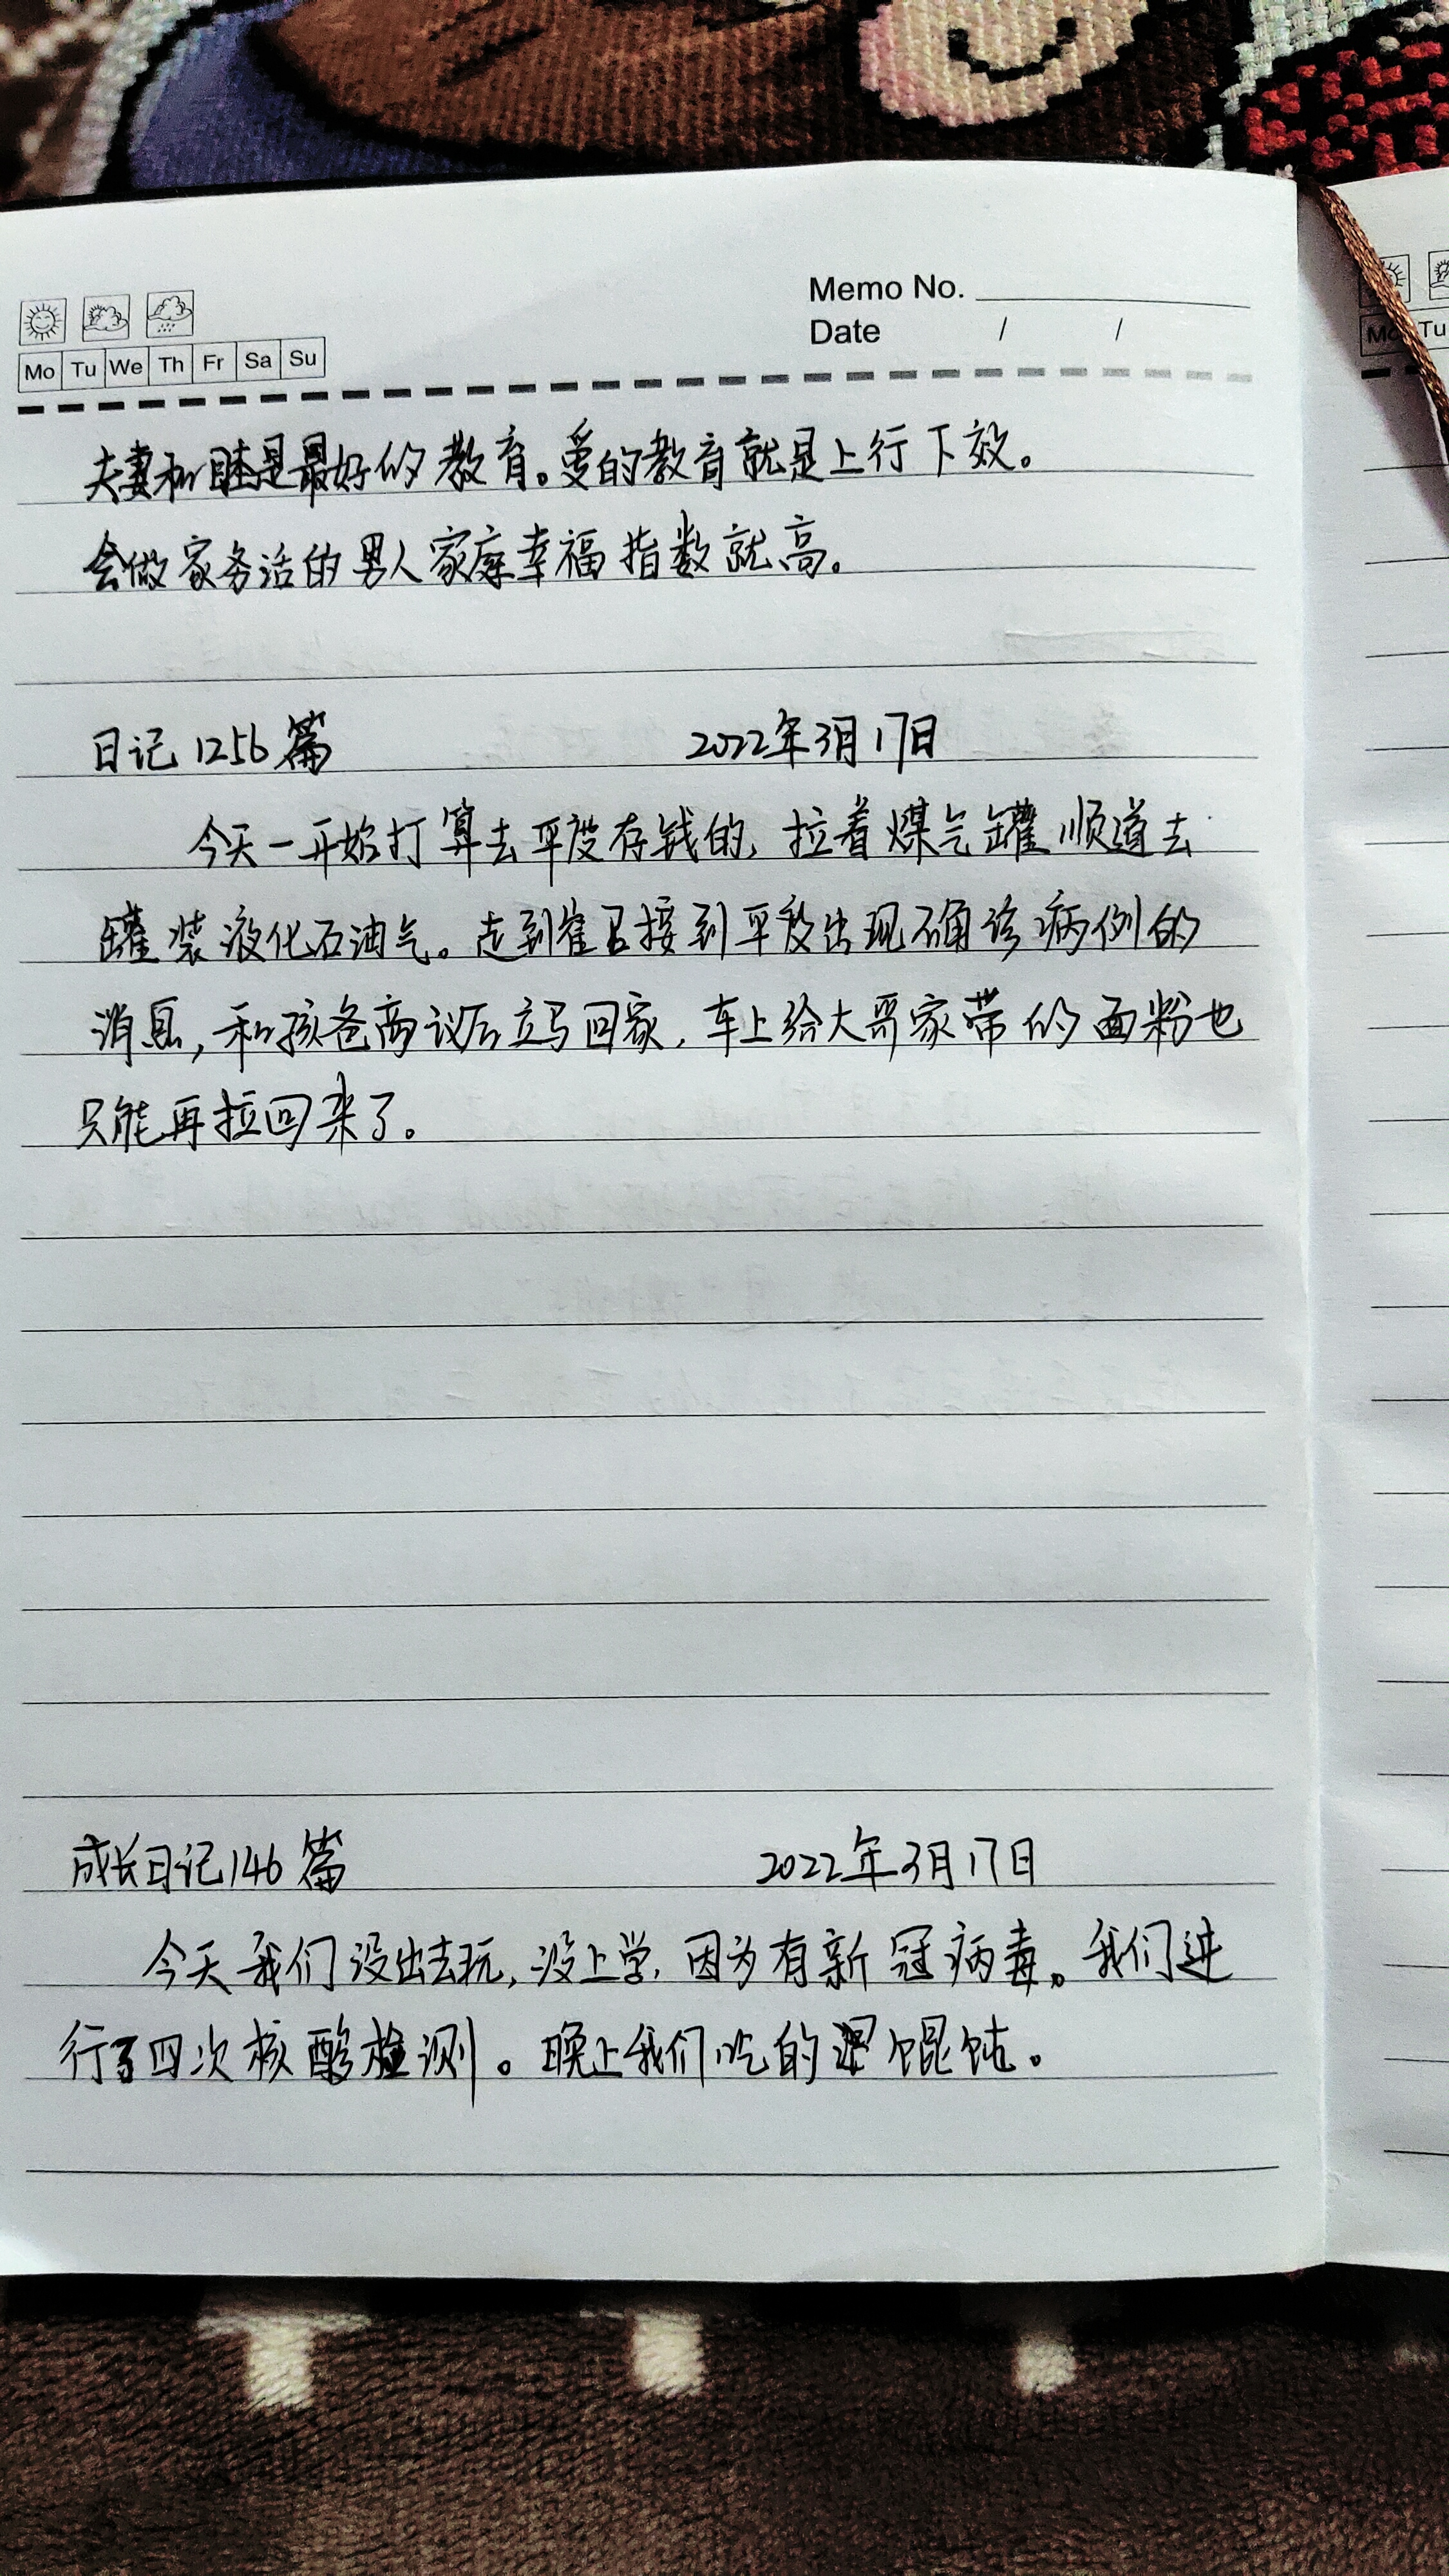 Memo No.
Date / /
Mo Tu We Th Fr Sa Su
Mo Tu
夫妻和睦是最好的教育。爱的教育就是上行下效。
会做家务活的男人家庭幸福指数就高。
日记1256篇 2022年3月17日
今天一开始打算去平度存钱的,拉着煤气罐顺道去
罐装液化石油气。走到崔召接到平度出现确诊病例的
消息,和孩爸商议后立马回家,车上给大哥家带的面粉也
只能再拉回来了。
成长日记146篇 2022年3月17日
今天我们没出去玩,没上学,因为有新冠病毒。我们进
行了四次核酸检测。晚上我们吃的馄饨。